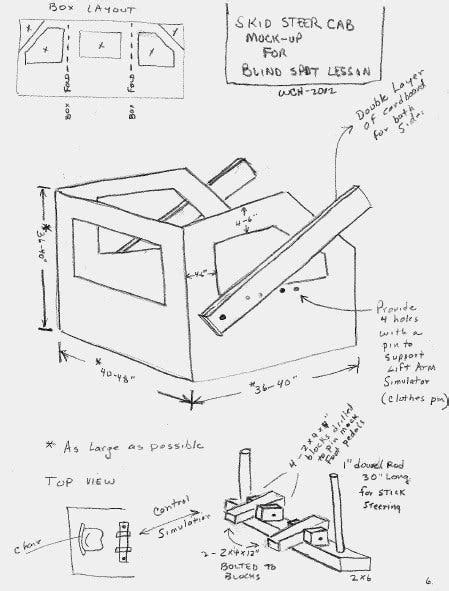 BOX LAYOUT
X
X
X
FOLD
FOLD
BOX
BOX
SKID STEER CAB
MOCK-UP
FOR
BLIND SPOT LESSON
WCH-2012
Double Layer
of cardboard
for both
sides
4-6"
4-6"
*36-40"
*40-48"
*36-40"
Provide
4 holes
with a
pin to
support
Lift Arm
Simulator
(clothes pin)
* As Large as possible
TOP VIEW
chair
Control
Simulation
4 - 2x4x4"
blocks drilled
to pin mock
foot pedals
1" dowel Rod
30" Long
for STICK
Steering
2 - 2x4x12"
BOLTED TO
BLOCKS
2x6
6.